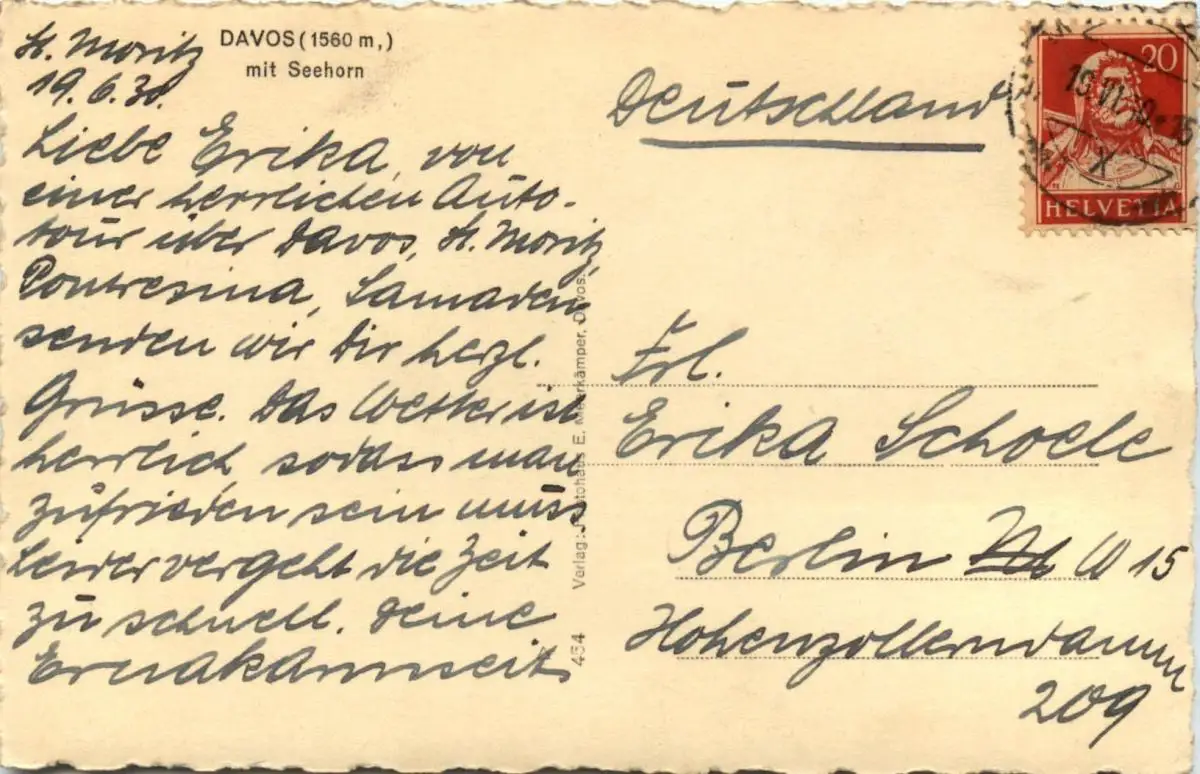 St. Moritz
19.6.30.
DAVOS (1560 m,)
mit Seehorn
Liebe Erika, von
einer herrlichen Auto-
tour über Davos, St. Moritz,
Pontresina, Samaden
senden wir Dir herzl.
Grüsse. Das Wetter ist
herrlich, sodass man
zufrieden sein muss
Leider vergeht die Zeit
zu schnell. Deine
Verlag: E. Meerkämper, Davos.
454
Deutschland
20
HELVETIA
Frl.
Erika Schoele
Berlin W 15
Hohenzollerndamm
209